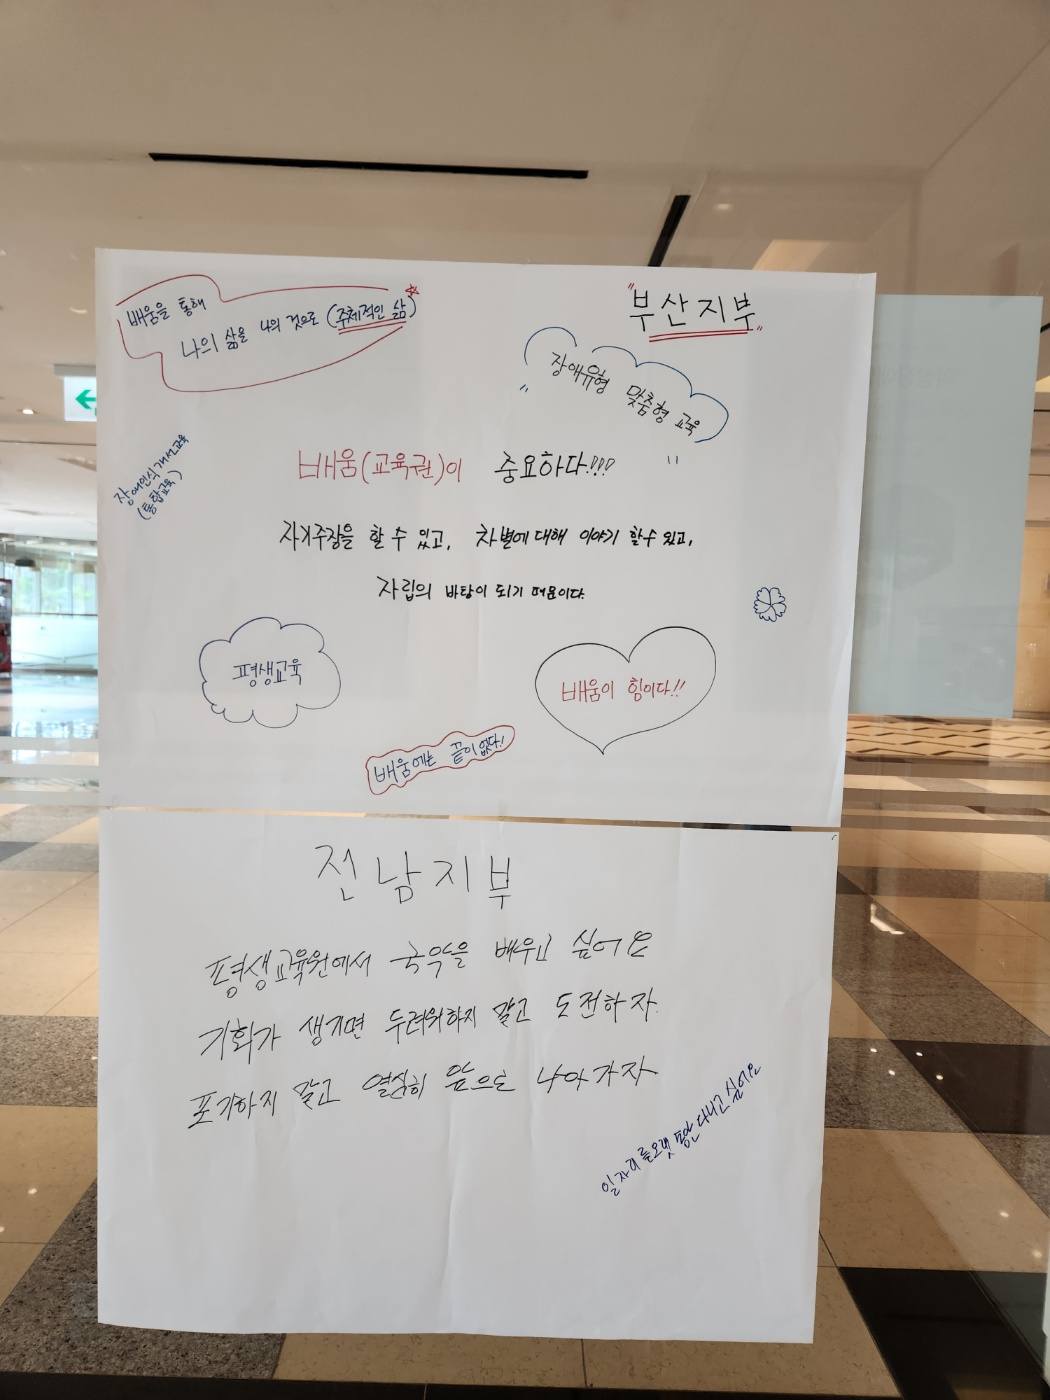 배움을 통해
나의 삶을 나의 것으로 (주체적인 삶)
"부산지부"
"장애유형 맞춤형 교육"
장애인식개선교육
(통합교육)
배움(교육권)이 중요하다!!!
자기주장을 할 수 있고, 차별에 대해 이야기 할 수 있고,
자립의 바탕이 되기 때문이다.
평생교육
배움이 힘이다!!
배움에는 끝이 없다!
전남지부
평생교육원에서 국악을 배우고 싶어요
기회가 생기면 두려워하지 말고 도전하자.
포기하지 말고 열심히 앞으로 나아가자
일자리를 오랫동안 다니고 싶어요